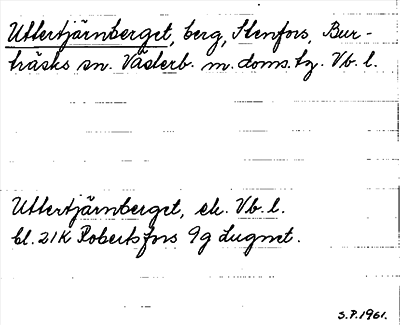 Uttertjärnberget, berg, Stenfors, Bur-
träsks sn. Västerb. m. doms.tg. Vb. l.
Uttertjärnberget, ek. Vb. l.
bl. 21K Robertsfors 9g Lugnet.
S.P. 1961.